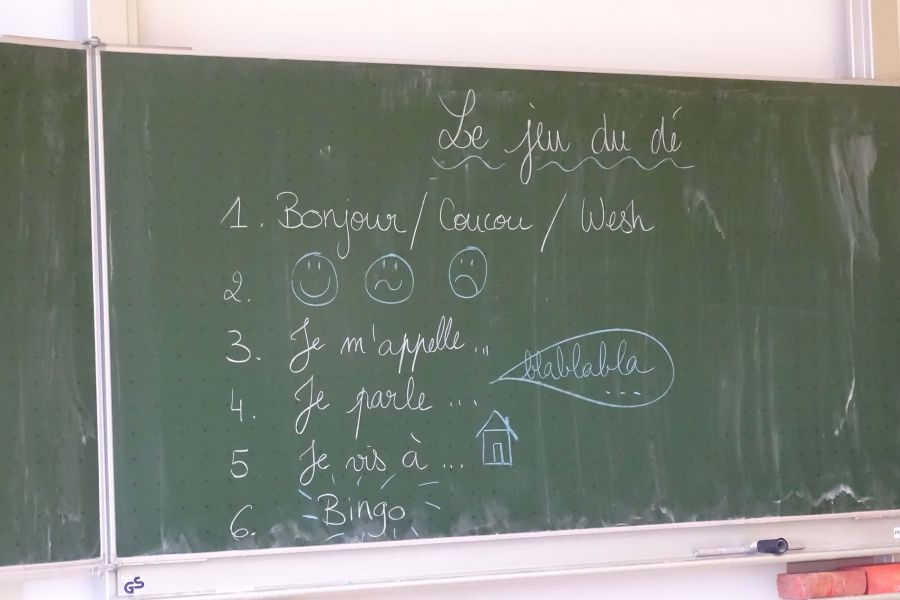 Le jeu du dé
1. Bonjour / Coucou / Wesh
2.
3. Je m'appelle...
blablabla
...
4. Je parle ...
5 Je vis à ...
6. Bingo
GS